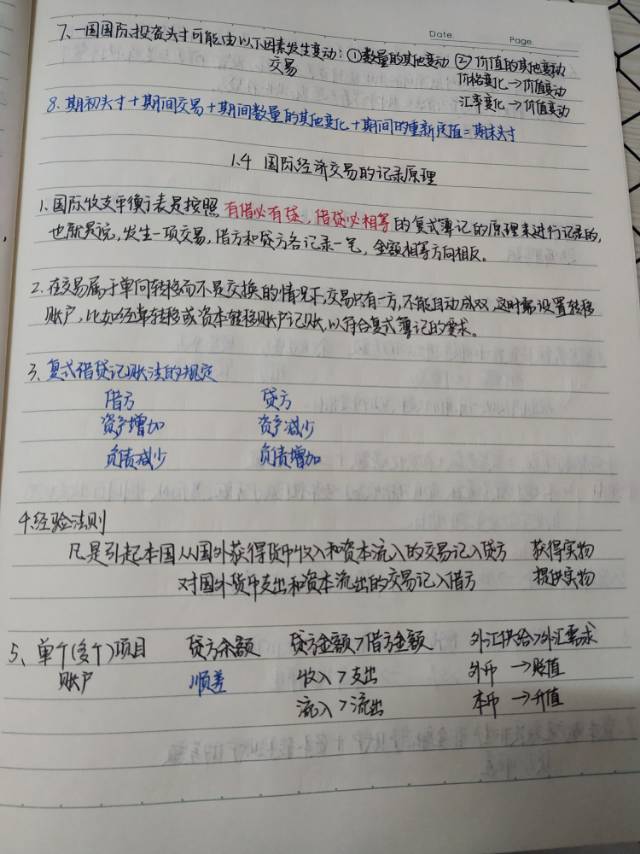 Date. Page.
7、一国国际投资头寸可能由以下因素发生变动：①数量的其他变动 ②价值的其他变动
交易 价格变化→价值变动
汇率变化→价值变动
8. 期初头寸+期间交易+期间数量的其他变化+期间的重新定值=期末头寸
1.4 国际经济交易的记录原理
1、国际收支平衡表是按照有借必有贷，借贷必相等的复式簿记的原理来进行记录的，
也就是说，发生一项交易，借方和贷方各记录一笔，金额相等方向相反。
2. 在交易属于单向转移而不是交换的情况下，交易只有一方，不能自动成双，这时需设置转移
账户，比如经常转移或资本转移账户记账，以符合复式簿记的要求。
3、复式借贷记账法的规定
借方 贷方
资产增加 资产减少
负债减少 负债增加
4.经验法则
凡是引起本国从国外获得货币收入和资本流入的交易记入贷方 获得实物
对国外货币支出和资本流出的交易记入借方 提供实物
5、单个(多个)项目 贷方余额 贷方金额>借方金额 外汇供给>外汇需求
账户 顺差 收入>支出 外币→贬值
流入>流出 本币→升值